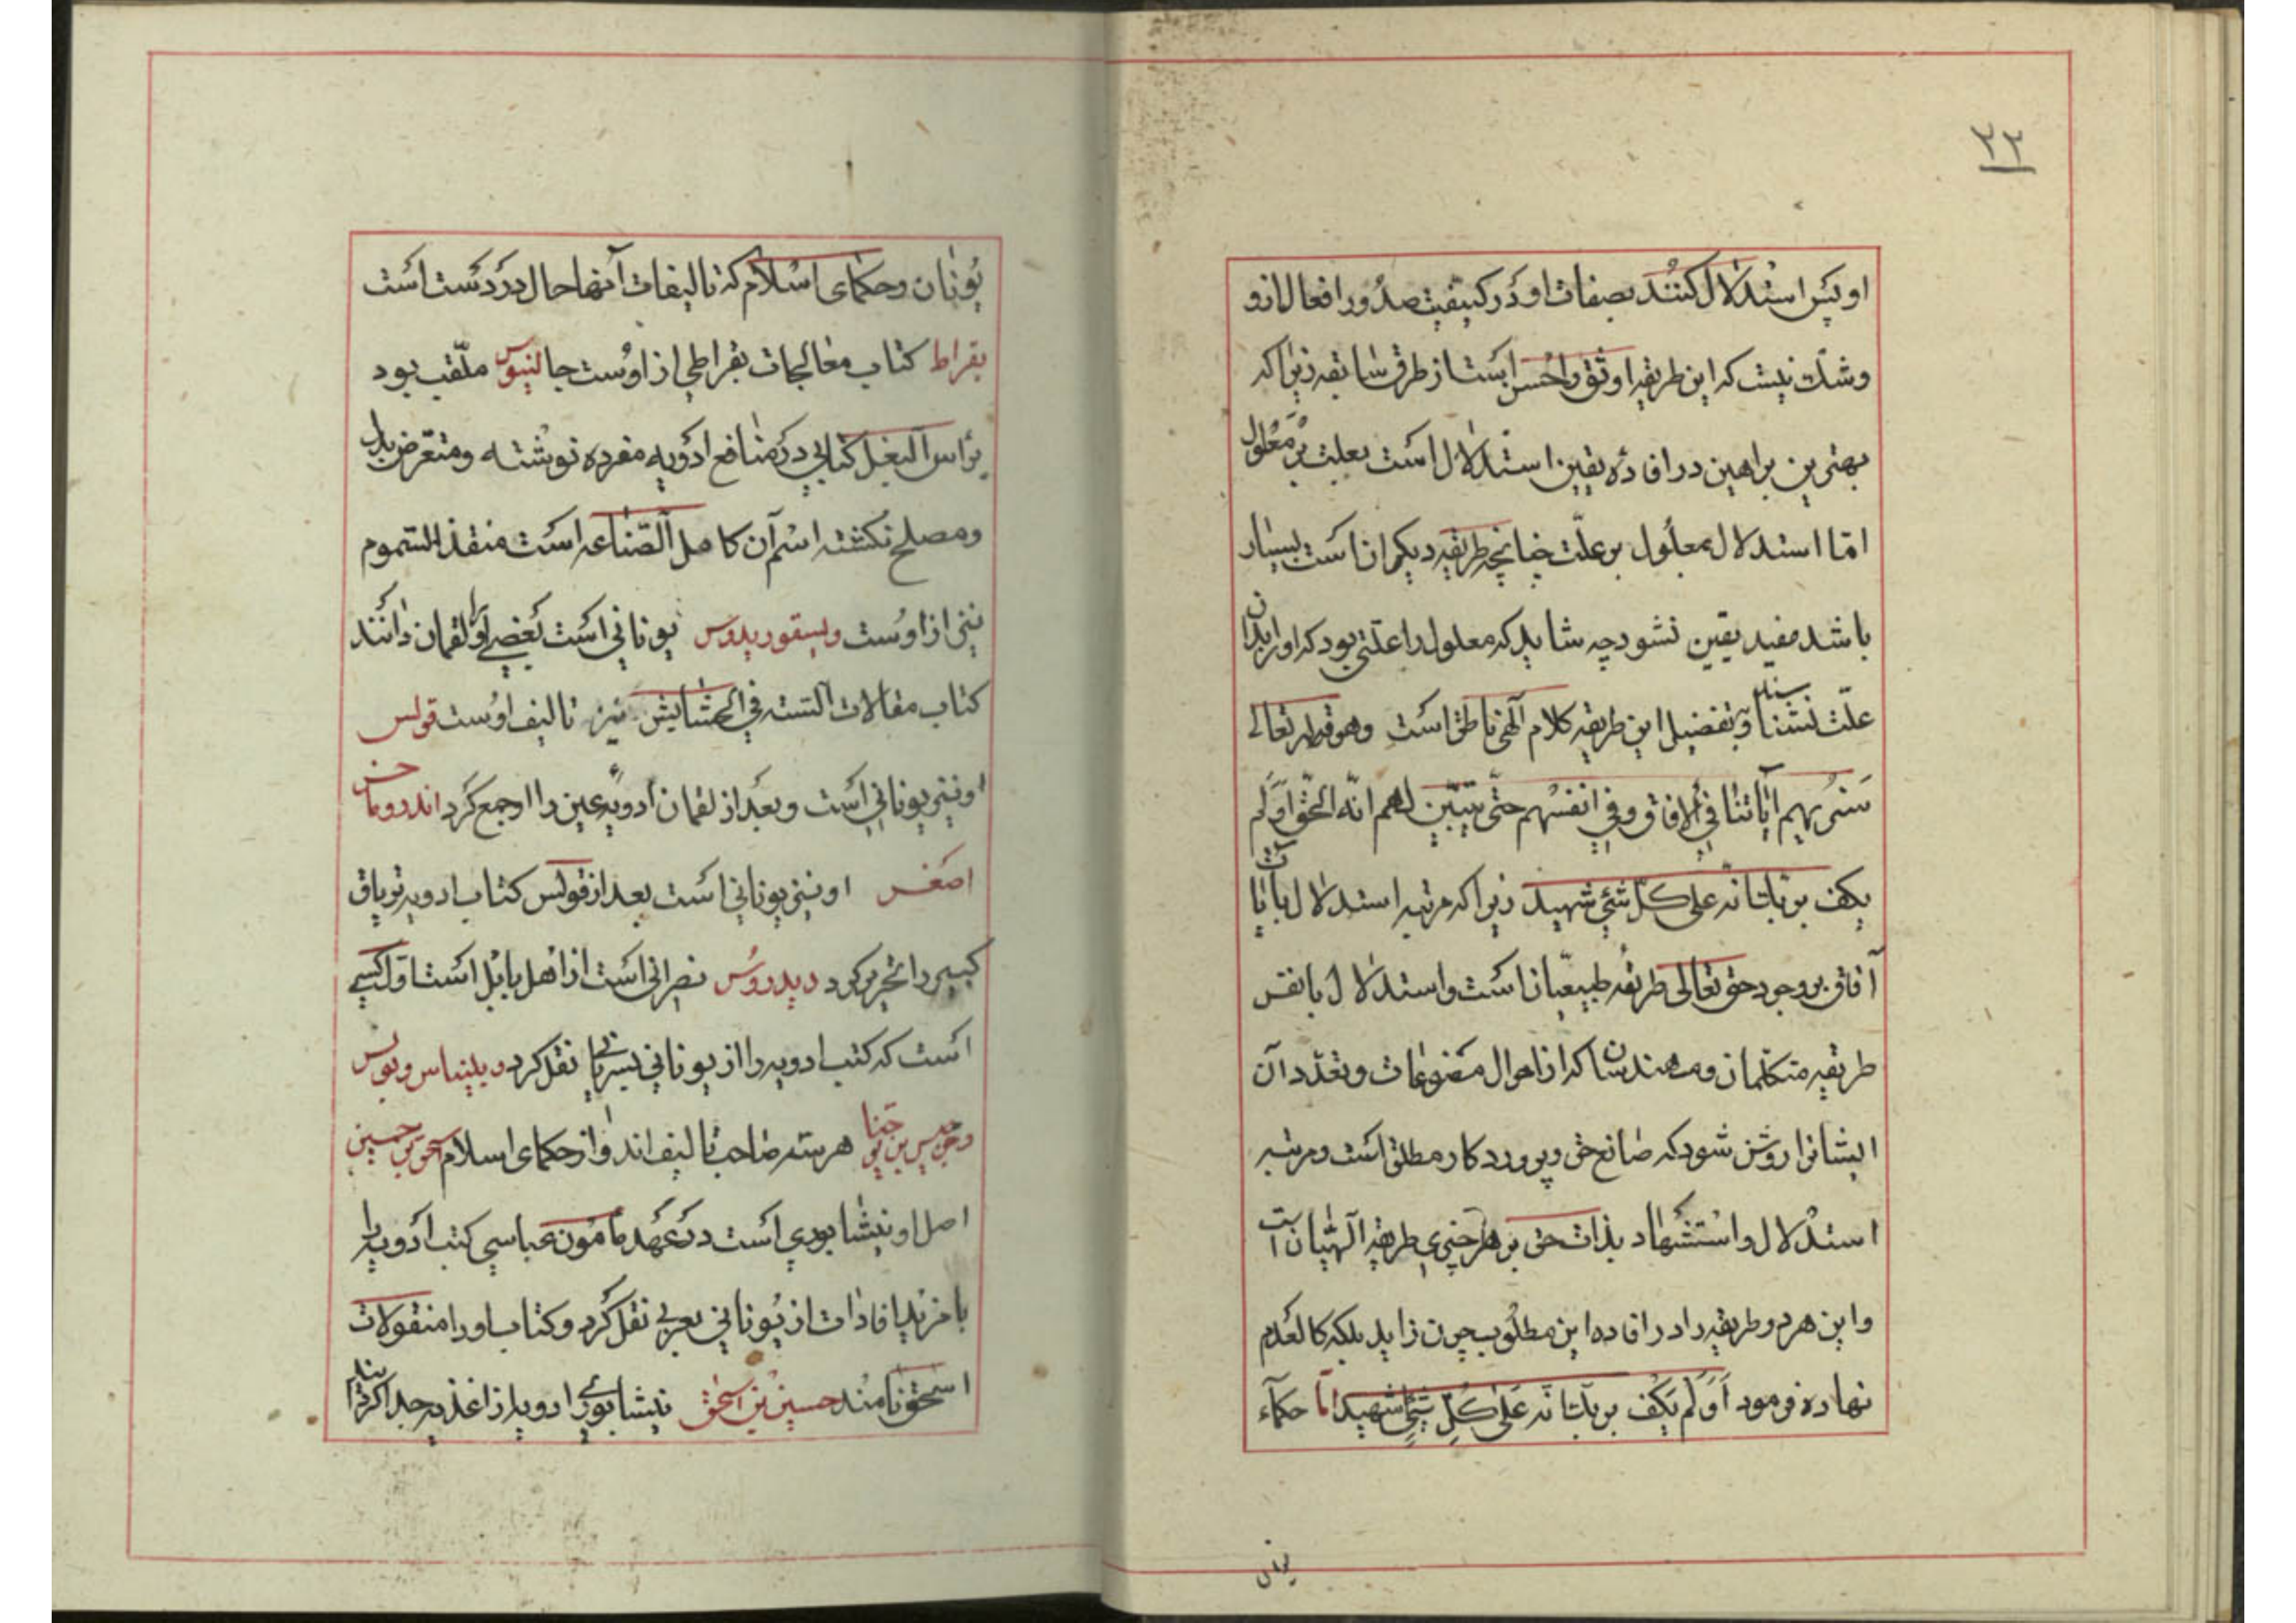 ۲۲
او پس استدلال کنند بصفات او در کیفیت صدور افعال ازو
وشک نیست که این طریقه اوثق واحسن است از طرق سابقه زیرا که
بهترین براهین در افادهٔ یقین استدلال است بعلت بر معلول
امّا استدلال بمعلول بر علّت چنانچه طریقه دیکران است بسیار
باشد مفید یقین نشود چه شاید که معلول را علّتی بود که او را بدان
علّت نشناسند وبتفضیل این طریقه کلام آلهی ناطق است وهو قوله تعالی
سَنُریهِم ایٰاتنا فی الافاق وفی انفسُهم حتّی یتبیّن لهم انّه الحقّ اَوَلَم
یکف بربّک انّه علی کلّ شئی شهید زیرا که مرتبه استدلال بایات
آفاق بر وجود حق تعالی طریقهٔ طبیعیّان است واستدلال بانفس
طریقه متکلّمان ومهندسان که از احوال مصنوعات وتعدّد آن
ایشانرا روشن شود که صانع حق وپروردکار مطلق است ومرتبه
استدلال واستشهاد بذات حق بر هر چیزی طریقه آلهیّان است
واین هر دو طریقه را در افاده این مطلوب چون زاید بلکه کالعدم
نهاده فرمود اَوَلَم یَکف بربّک انّه عَلیٰ کُلّ شئیٍ شهید امّا حکمآء
یونان
یُونان وحکمای اسلام که تالیفات آنها حال در دست است
بقراط کتاب معالجات بقراطی از اوست جالنیوس ملّقب بود
براس البغل کتابی در منافع ادویه مفرده نوشته ومتعرض بدل
ومصلح نکشته اسم آن کامل الصّناعه است منقذ السّموم
نیز از اوست ویسقوریدوس یونانی است بعضی او را لقمان دانند
کتاب مقالات السّته فی الحشایش نیز تالیف اوست قولس
او نیز یونانی است وبعد از لقمان ادویه عین را او جمع کرد اندروماخس
اصغر او نیز یونانی است بعد از قولس کتاب ادویه تریاق
کبیر را تحریر کرد دیدروس نصرانی است از اهل بابل است اوّل کسی
است که کتب ادویه را از یونانی بسریانی نقل کرد دیلیناس وبولس
هر سه صاحب تالیف اند واز حکمای اسلام اسحق بن حسین
اصل او نیشابوری است در عهد مامون عباسی کتب ادویه را
با مزید افادات از یونانی بعربی نقل کرد وکتاب او را منقولات
اسحق نامند حسین بن اسحق نیشابوری ادویه را از اغذیه جدا کردانید